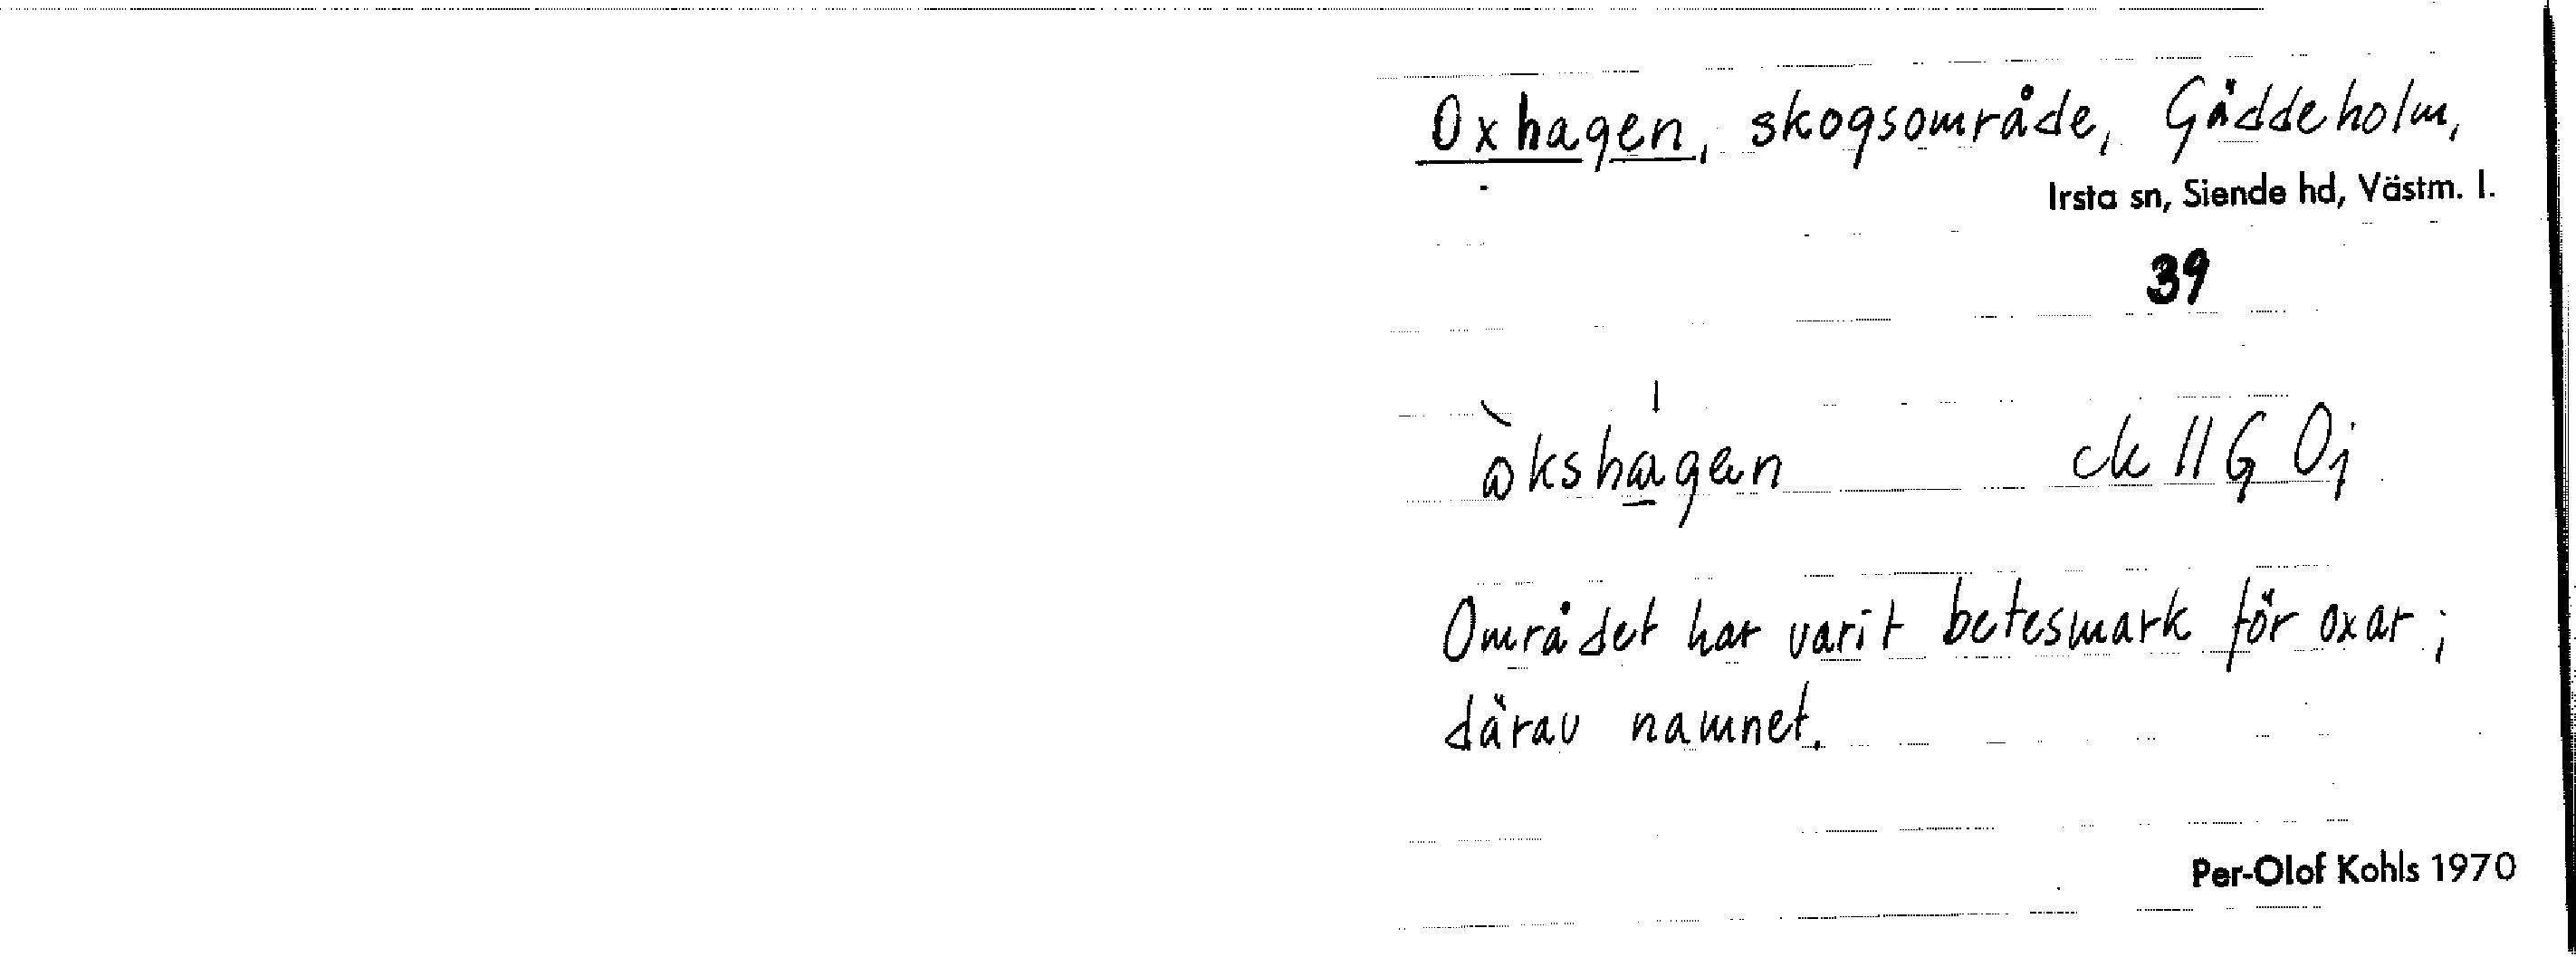 Oxhagen, skogsområde, Gäddeholm,
Irsta sn, Siende hd, Västm. l.
39
ck 11 G 0j
Området har varit betesmark för oxar;
därav namnet.
Per-Olof Kohls 1970